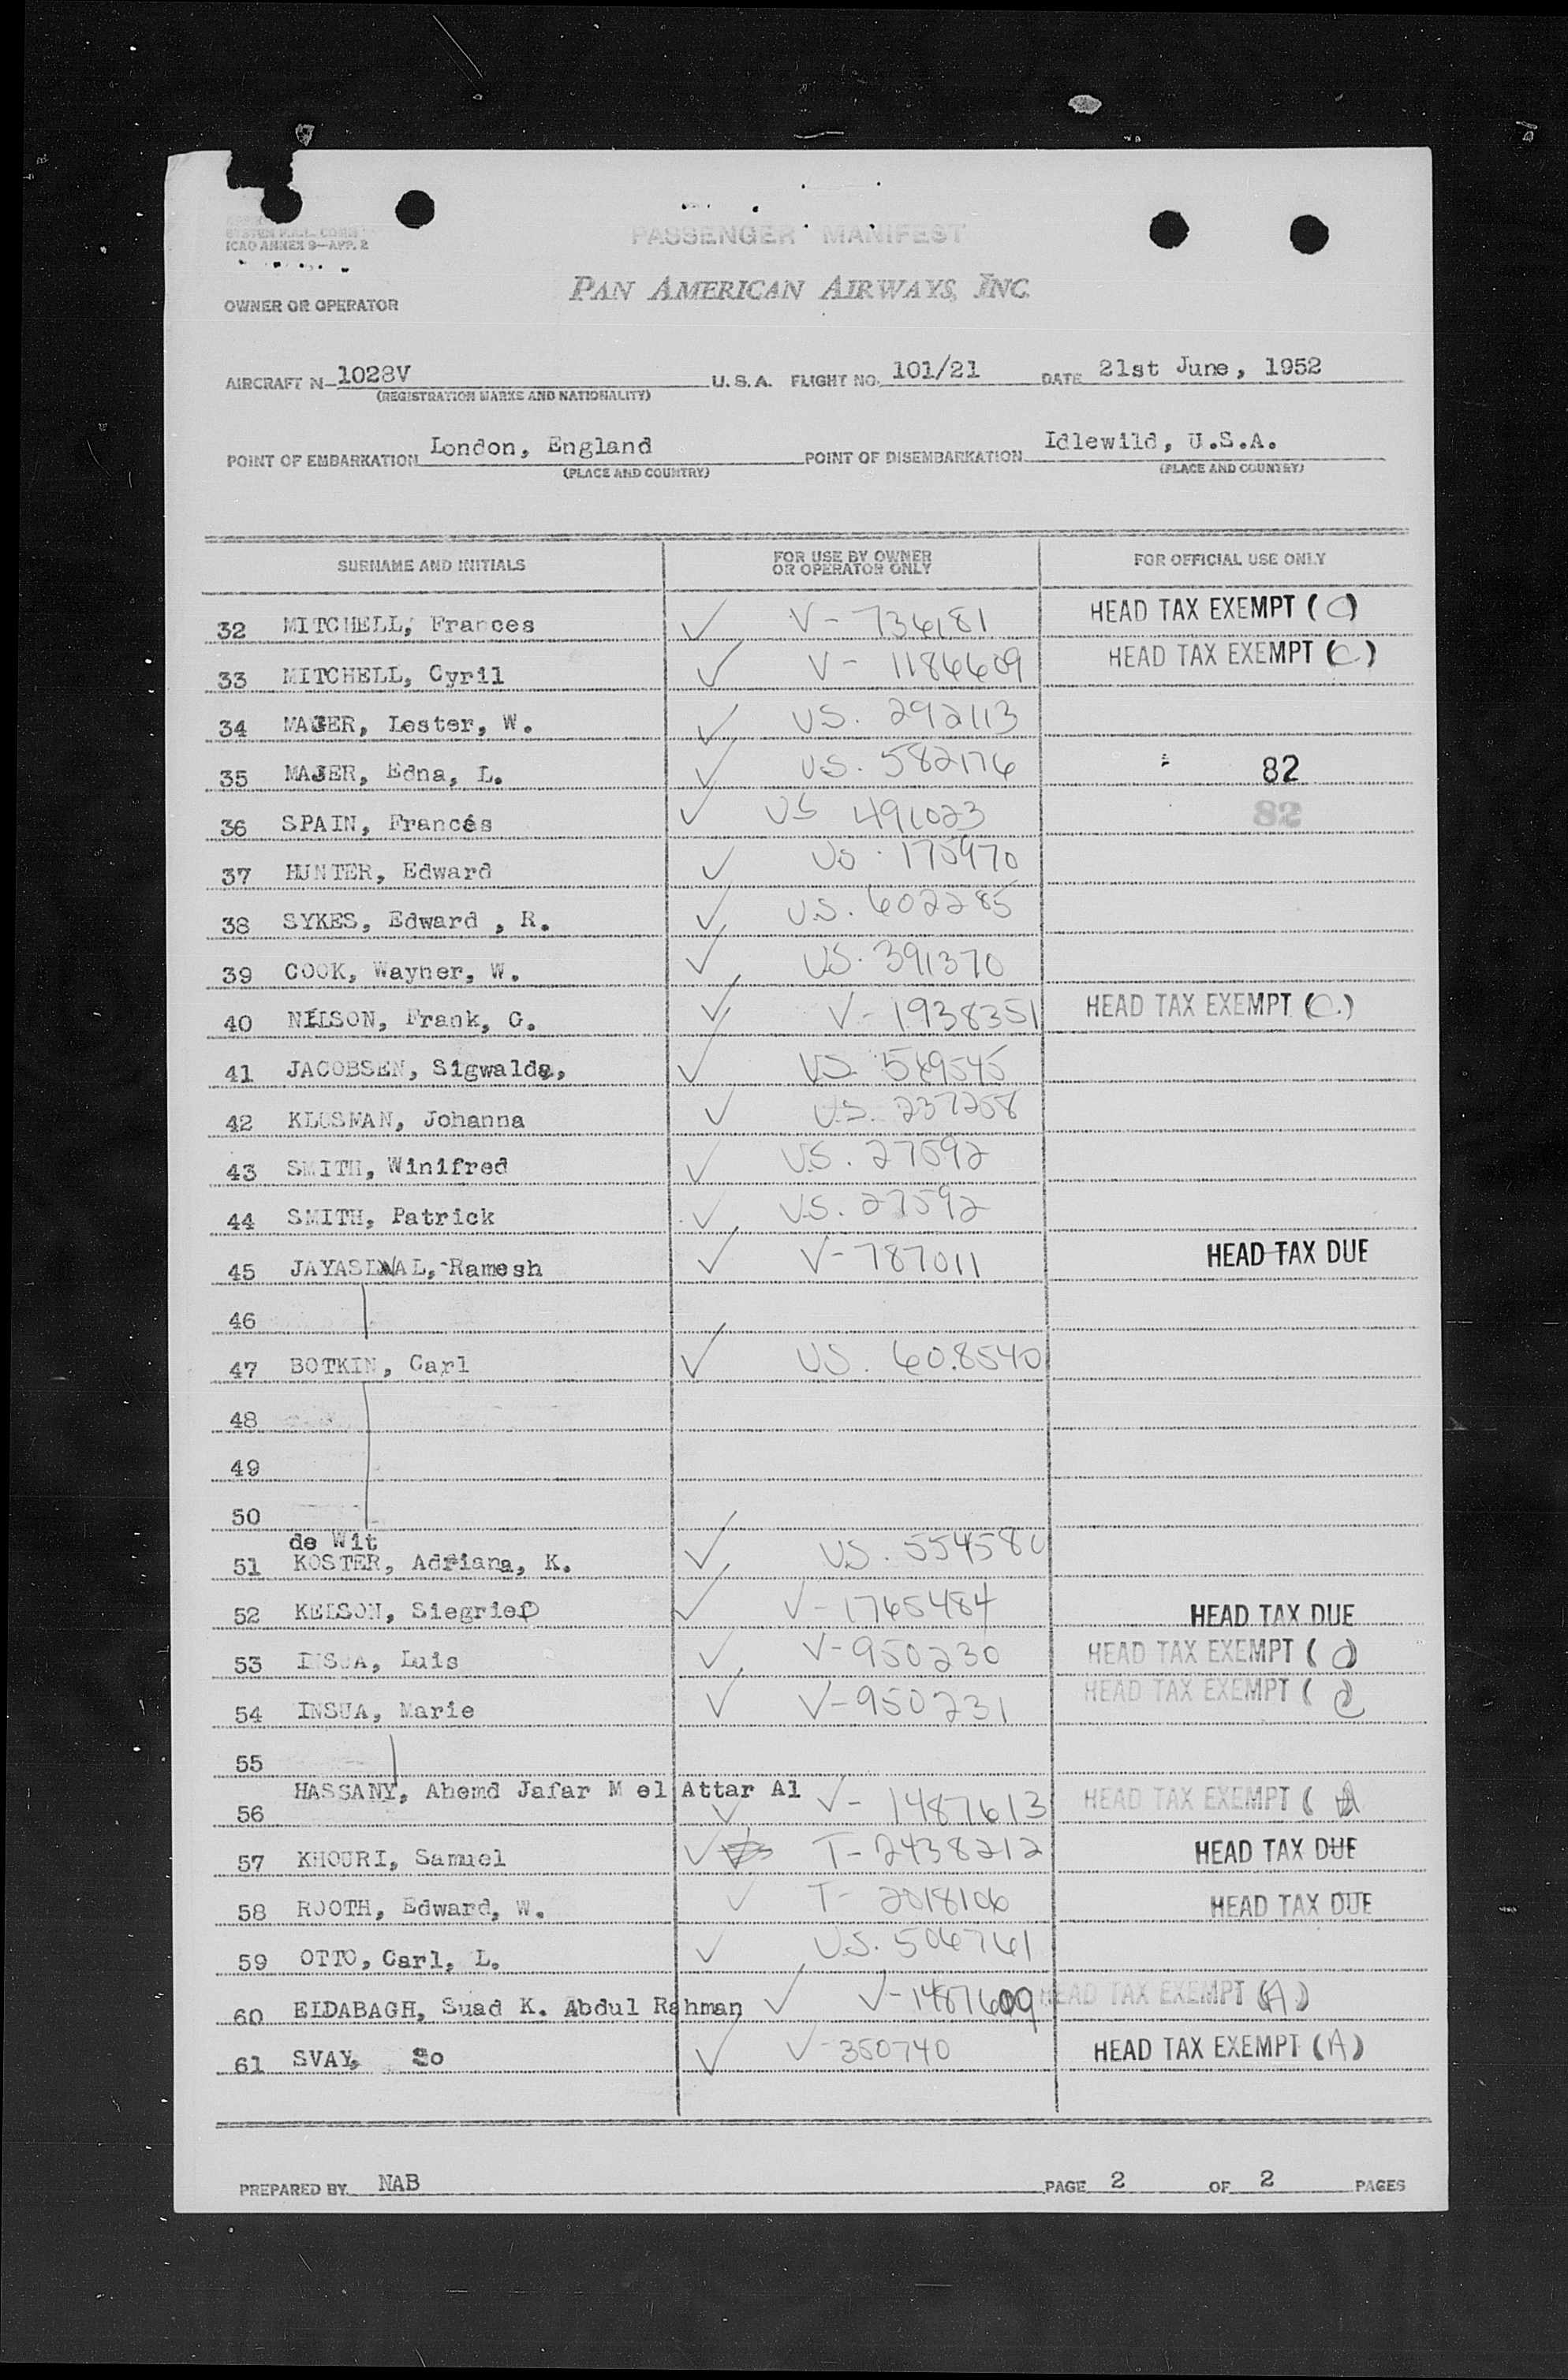 SYSTEM F.A.L. COMB
ICAO ANNEX 9—APP. 2
PASSENGER MANIFEST
PAN AMERICAN AIRWAYS, INC.
OWNER OR OPERATOR
AIRCRAFT N- 1028V U. S. A. FLIGHT NO. 101/21 DATE 21st June, 1952
(REGISTRATION MARKS AND NATIONALITY)
POINT OF EMBARKATION London, England POINT OF DISEMBARKATION Idlewild, U.S.A.
(PLACE AND COUNTRY) (PLACE AND COUNTRY)
SURNAME AND INITIALS FOR USE BY OWNER OR OPERATOR ONLY FOR OFFICIAL USE ONLY
32 MITCHELL, Frances ✓ V- 734181 HEAD TAX EXEMPT (C)
33 MITCHELL, Cyril ✓ V- 1184609 HEAD TAX EXEMPT (C)
34 Lester, W. ✓ US. 292113
35 Edna, L. ✓ US. 582176 82
36 SPAIN, Francés ✓ US 491023 82
37 HUNTER, Edward ✓ US. 175970
38 SYKES, Edward , R. ✓ U.S. 602285
39 COOK, Wayner, W. ✓ US. 391370
40 NELSON, Frank, G. ✓ V- 1938351 HEAD TAX EXEMPT (C.)
41 JACOBSEN, ✓ US. 549545
42 KLOSMAN, Johanna ✓ U.S. 237258
43 SMITH, Winifred ✓ U.S. 27592
44 SMITH, Patrick ✓ U.S. 27592
45 Ramesh ✓ V- 787011 HEAD TAX DUE
46
47 BOTKIN, Carl ✓ US. 60.8540
48
49
50
de Wit
51 KOSTER, Adriana, K. ✓ US.
52 KELSON, Siegried ✓ V- 1765484 HEAD TAX DUE
53 INSUA, Luis ✓ V- 950230 HEAD TAX EXEMPT (C)
54 INSUA, Marie ✓ V- 950231 HEAD TAX EXEMPT (C)
55
HASSANY, Ahemd Jafar M el Attar Al
56 ✓ V- 1487613 HEAD TAX EXEMPT (A
57 KHOURI, Samuel ✓ T- 2438212 HEAD TAX DUE
58 ROOTH, Edward, W. ✓ T- 2018106 HEAD TAX DUE
59 OTTO, Carl, L. ✓ U.S. 506761
60 ELDABAGH, Suad K. Abdul Rahman ✓ V- 1487609 HEAD TAX EXEMPT (A)
61 SVAY, So ✓ V- 350740 HEAD TAX EXEMPT (A)
PREPARED BY NAB PAGE 2 OF 2 PAGES